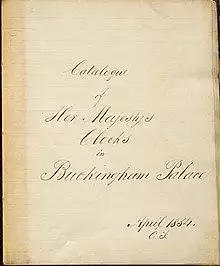 Catalogue
of
Her Majesty's
Clocks
in
Buckingham Palace
April 1884.